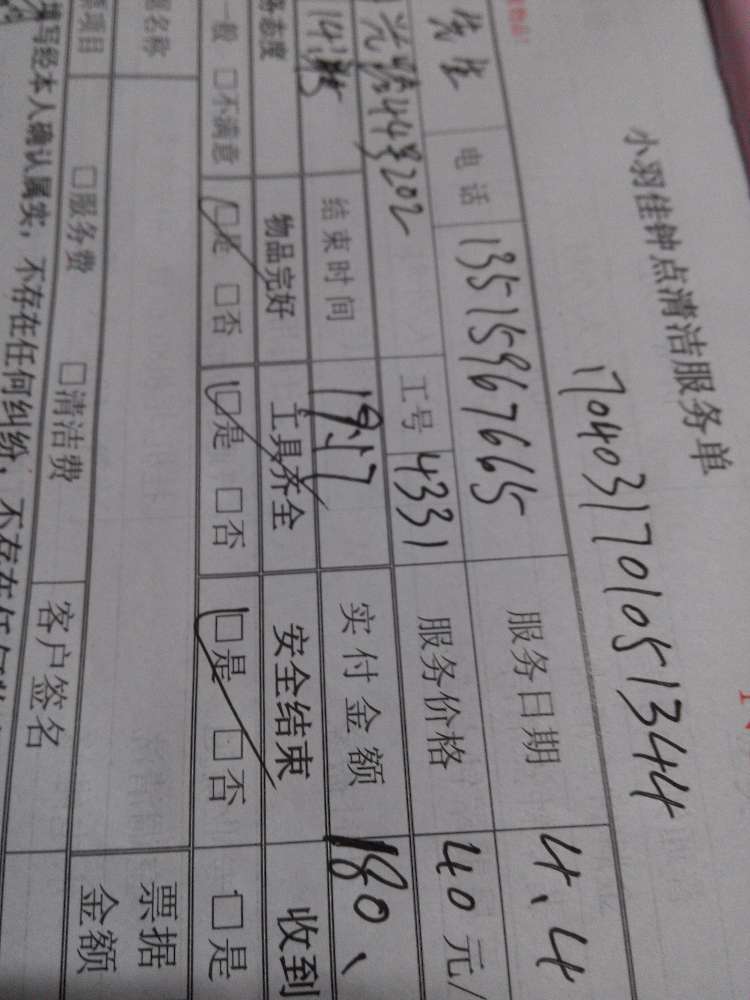 小羽佳钟点清洁服务单
1704031701051344
先生 电话 13515967665 服务日期 4.4
光路44号202 工号 4331 服务价格 40元/
结束时间 实付金额 180、
态度 物品完好 工具齐全 安全结束 收到
一般 □不满意 □是 □否 □是 □否 □是 □否 □是
名称 票据
项目 □服务费 □清洁费 客户签名 金额
填写经本人确认属实，不存在任何纠纷，不存在任何